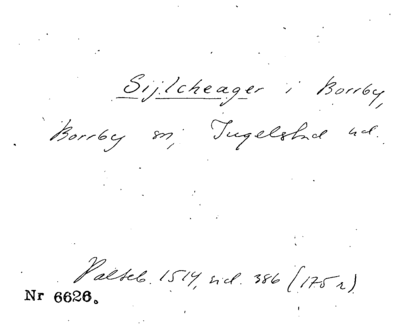 Sijlcheager i Borrby,
Borrby sn, Ingelstad hd.
Palteb. 1514, sid. 386 (175 r)
Nr 6626.